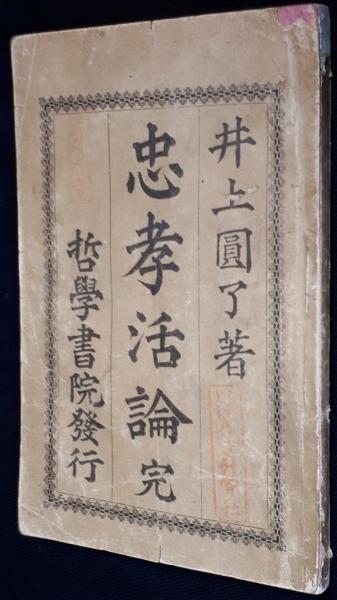 井上圓了著
忠孝活論完
哲學書院發行